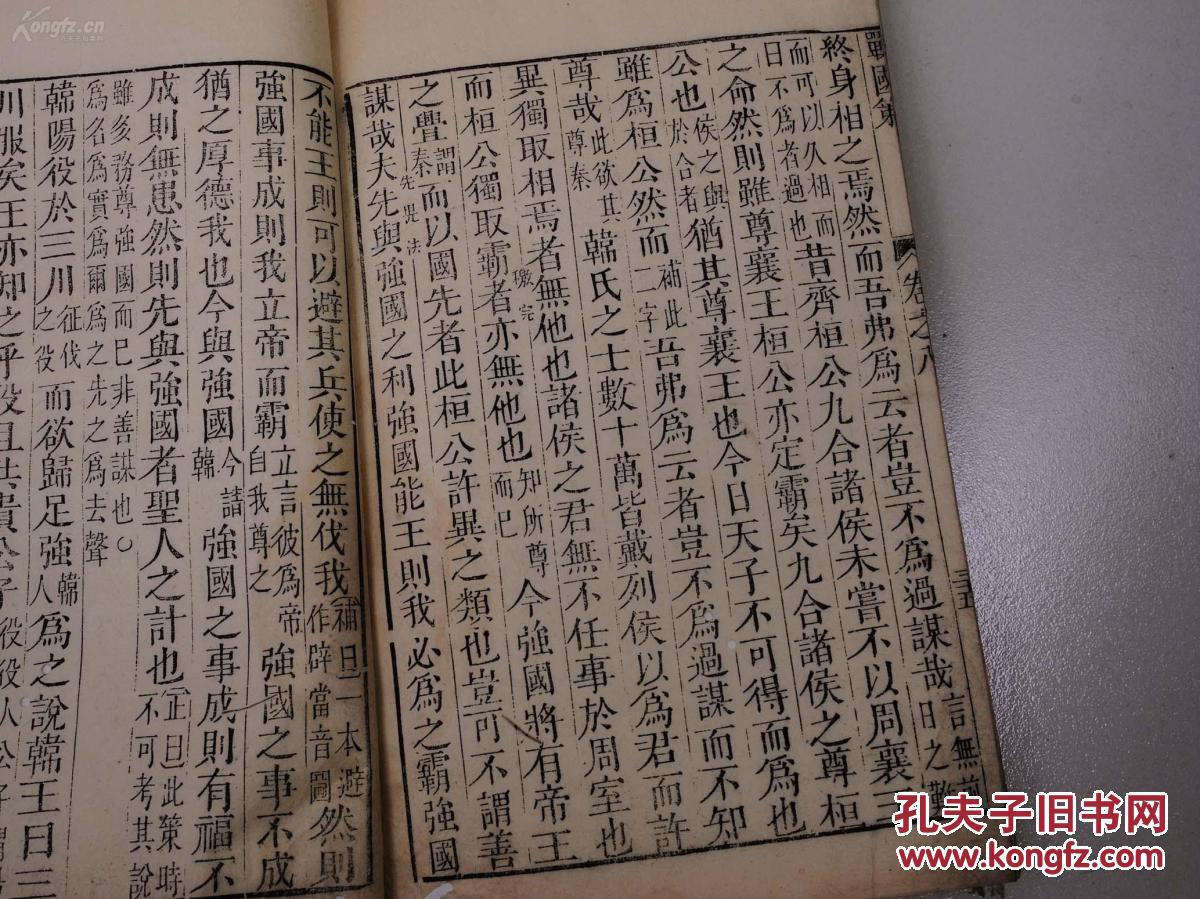 戰國策
卷之八
終身相之焉然而吾弗爲云者豈不爲過謀哉言無
而可以久相而日不爲者過也昔齊桓公九合諸侯未嘗不以周襄
之命然則雖尊襄王桓公亦定霸矣九合諸侯之尊桓
公也侯之與於合者猶其尊襄王也今日天子不可得而爲也
雖爲桓公然而補此二字吾弗爲云者豈不爲過謀而不知
尊哉此欲其尊秦韓氏之士數十萬皆戴列侯以爲君而許
異獨取相焉者無他也諸侯之君無不任事於周室也
而桓公獨取霸者亦無他也知所尊而已今強國將有帝王
之舋謂秦而以國先者此桓公許異之類也豈可不謂善
謀哉夫先與強國之利強國能王則我必爲之霸強國
不能王則可以避其兵使之無伐我補曰一本避作辟當音圖然則
強國事成則我立帝而霸立言彼爲帝自我尊之強國之事不成
猶之厚德我也今與強國今韓請強國之事成則有福不
成則無患然則先與強國者聖人之計也正曰此策時不可考其說
雖多務尊強國而已非善謀也○
爲名爲實爲爾爲之先之爲去聲
韓陽役於三川征伐之役而欲歸足強韓人爲之說韓王曰三
川服矣王亦知之乎役且共貴公子
Kongfz.cn
孔夫子旧书网
www.kongfz.com